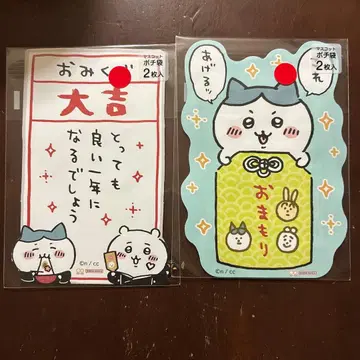 マスコット
ポチ袋
2枚入
おみく
大吉
とっても
良い一年に
なるでしょう
©n/cc
マスコット
ポチ袋
2枚入
あげるッ
れ
おまもり
©n/cc